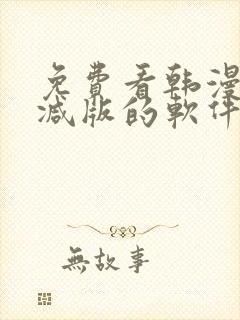 免費看韩漫
减版的軟件
無故事